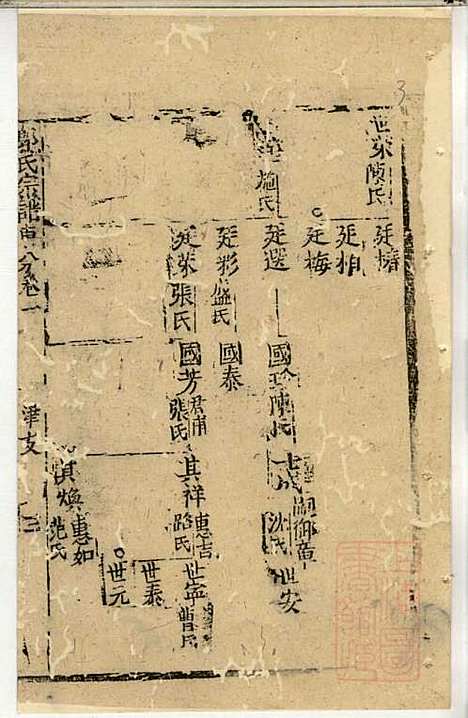 3
世榮陳氏
廷椿
廷柏
廷梅
施氏
廷選
國珍陳氏
嗣御章
沈氏
世安
廷彩盛氏
國泰
廷榮張氏
國芳君甫
張氏
其祥惠吉
路氏
世寧曹氏
世泰
世元
其煥惠如
范氏
氏宗譜
分卷一
津支